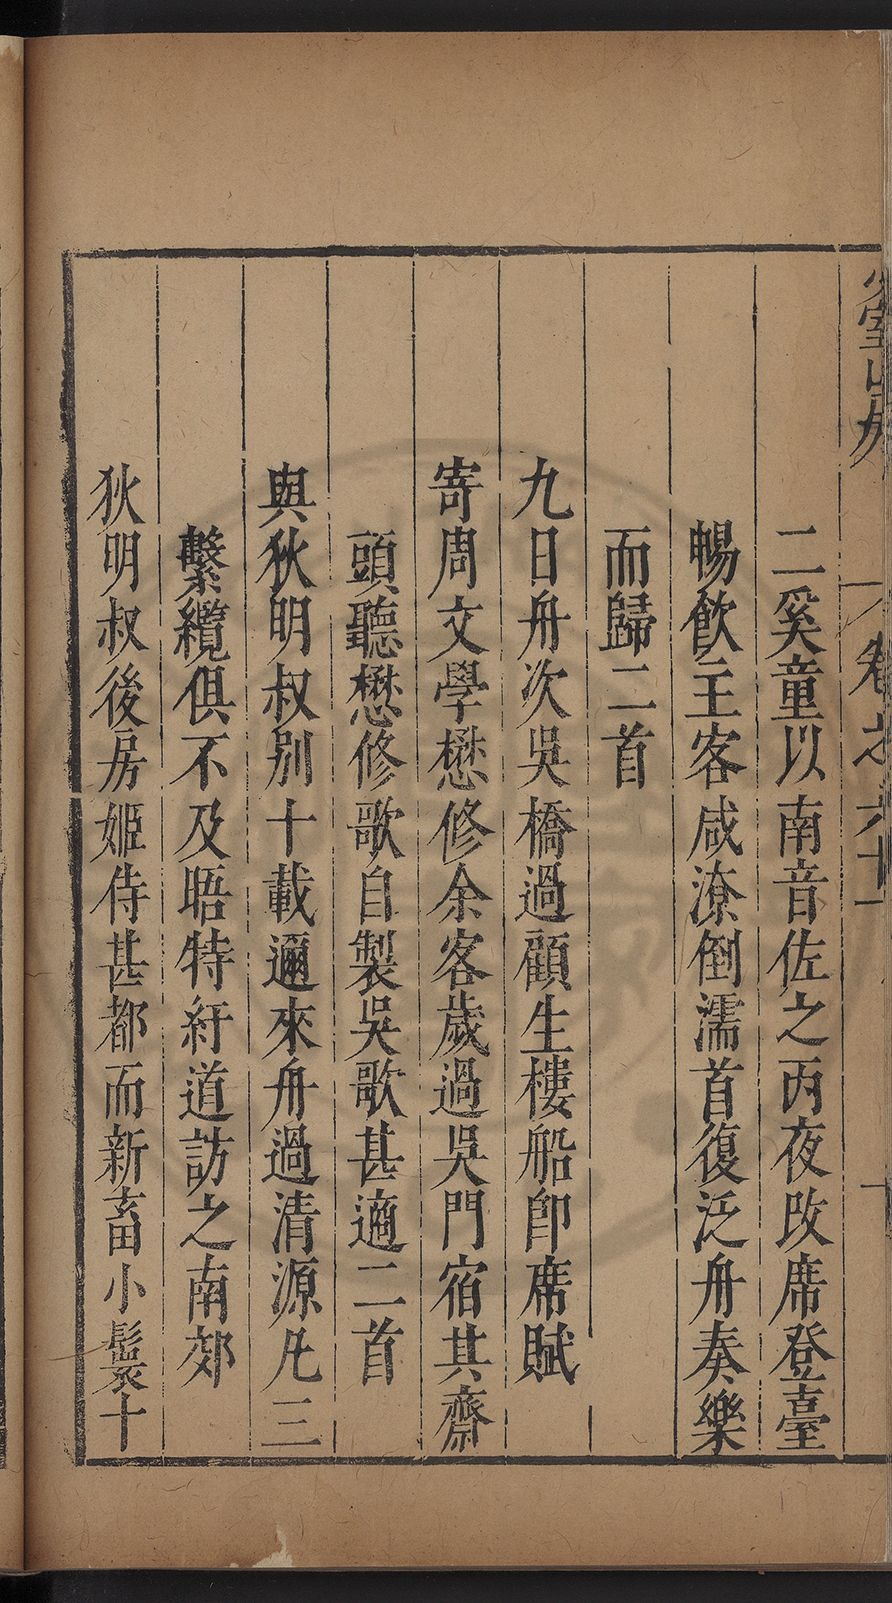 少室山房
卷之六十一
二奚童以南音佐之丙夜改席登臺
暢飲主客咸潦倒濡首復泛舟奏樂
而歸二首
九日舟次吳橋過顧生樓船卽席賦
寄周文學懋修余客歲過吳門宿其齋
頭聽懋修歌自製吳歌甚適二首
與狄明叔別十載邇來舟過清源凡三
繫纜俱不及晤特紆道訪之南郊
狄明叔後房姬侍甚都而新畜小鬟十